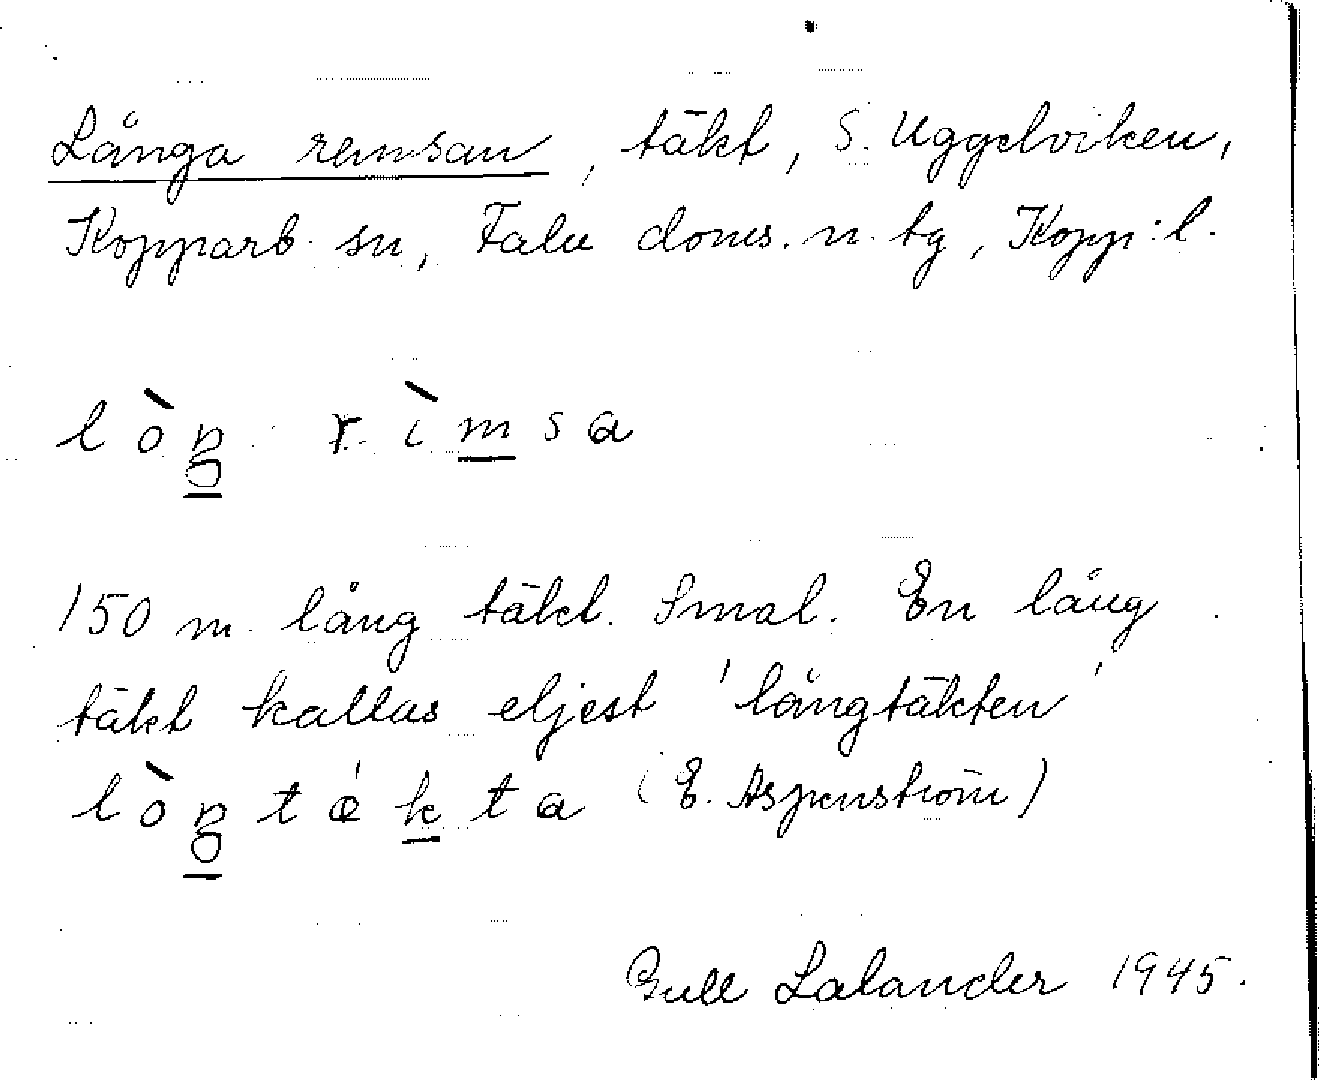 Långa remsan, täkt, S. Uggelviken,
Kopparb. sn, Falu doms. n. tg, Kopp:l.
lòŋ rìmsa
150 m lång täkt. Smal. En lång
täkt kallas eljest 'långtäkten'
lòŋtǽkta (E. Aspenström)
Gull Lalander 1945.